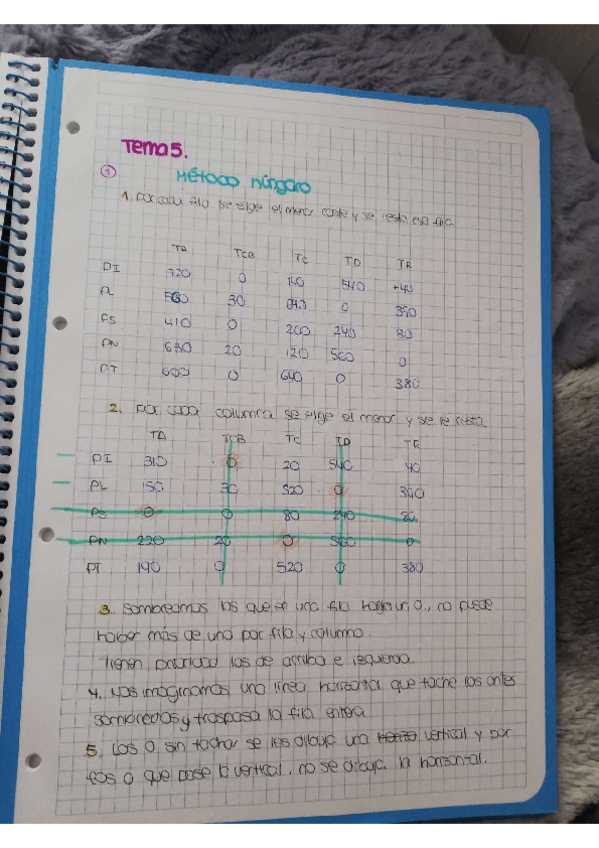 Tema 5.
1 Método húngaro
1. Por cada fila se elige el menor coste y se resta esa fila
TA TCB TC TD TR
PI 720 0 140 540 +40
PL 560 30 640 0 390
PS 410 0 200 240 80
PN 630 20 120 560 0
PT 600 0 640 0 380
2. Por cada columna se elige el menor y se le resta.
TA TCB TC TD TR
PI 310 0 20 540 40
PL 150 30 520 0 390
PS 0 0 80 240 80
PN 220 20 0 560 0
PT 190 0 520 0 380
3. Sombreamos los que en una fila haya un 0, no puede
haber más de uno por fila y columna.
Tienen prioridad los de arriba e izquierda.
4. Nos imaginamos una línea horizontal que tache los antes
sombreados y traspasa la fila entera
5. Los 0, sin tachar se les dibuja una vertical y por
los 0 que pase la vertical, no se dibuja la horizontal.